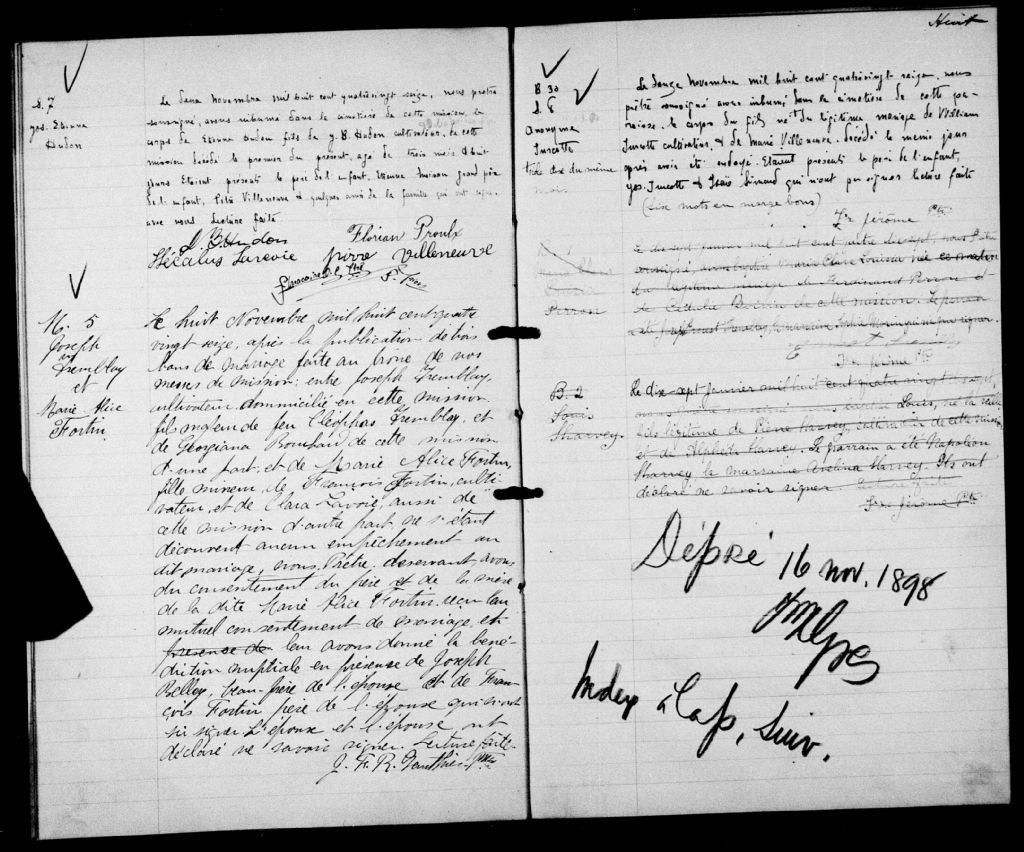 Huit
S. 7
Jos. Etienne
Hudon
Le deux Novembre mil huit cent quatrevingt seize, nous prêtre
soussigné, avons inhumé dans le cimetière de cette mission, le
corps de Etienne Hudon fils de J. B. Hudon cultivateur, de cette
mission décédé le premier du présent, agé de trois mois & huit
jours. Etaient présents le père de l'enfant, Etienne grand père
de l'enfant, Villeneuve & quelques amis de la famille qui ont signé
avec nous. Lecture faite
J B Hudon
Florian Proulx
Lavoie
Pierre Villeneuve
M. 5
Joseph
Tremblay
et
Marie Alice
Fortin
Le huit Novembre mil huit cent quatre
vingt seize, après la publication de trois
bans de mariage faite au prône de nos
messes de mission: entre Joseph Tremblay,
cultivateur domicilié en cette mission
fils majeur de feu Cléophas Tremblay, et
de Georgiana Bouchard de cette mission
d'une part, et de Marie Alice Fortin,
fille mineure, de François Fortin, culti
vateur, et de Clara Lavoie, aussi de
cette mission d'autre part, ne s'étant
découvert aucun empêchement au
dit mariage, nous, Prêtre, desservant avons
du consentement du père et de la mère
de la dite Marie Alice Fortin, reçu leur
mutuel consentement de mariage, et
presence de leur avons donné la béné-
diction nuptiale en présence de Joseph
Belley, beau-père de l'épouse et de Fran-
çois Fortin père de l'épouse qui
signer L'époux et l'épouse ont
déclaré ne savoir signer. Lecture faite.
J. F. R. Gauthier Ptre
B 30
S. 8
Anonyme
Turcotte
dix du même
mois.
Le douze Novembre mil huit cent quatrevingt seize, nous
prêtre soussigné avons inhumé dans le cimetière de cette pa-
roisse, le corps du fils né du légitime mariage de William
Turcotte cultivateur, & de Marie Villeneuve. décédé le même jour
après avoir été ondoyé. Etaient présents le père de l'enfant,
Jos. Turcotte & Isaïe Simard qui n'ont pu signer lecture faite
(Six mots en marge bons)
Fr Jérôme Ptre
B. 1
Marie
Louisa
Perron
Le dix sept janvier mil huit cent quatre vingt dix sept, nous Prêtre
soussigné avons baptisé Marie Claire Louisa née
du légitime mariage de Ferdinand Perron et
de de cette mission. Le parrain
a été Tremblay, la marraine signer.
Fr. Jérôme Ptre
B. 2
Louis
Harvey.
Le dix-sept janvier mil huit cent quatre vingt dix sept,
avons Louis, né la veille
fils légitime de Pierre Harvey, cultivateur de cette mission
et de Harvey. Le parrain a été Napoléon
Harvey, la marraine Avelina Harvey. Ils ont
déclaré ne savoir signer. Lecture faite
Fr. Jérôme Ptre
Déposé 16 nov. 1898
Index à la p. suiv.